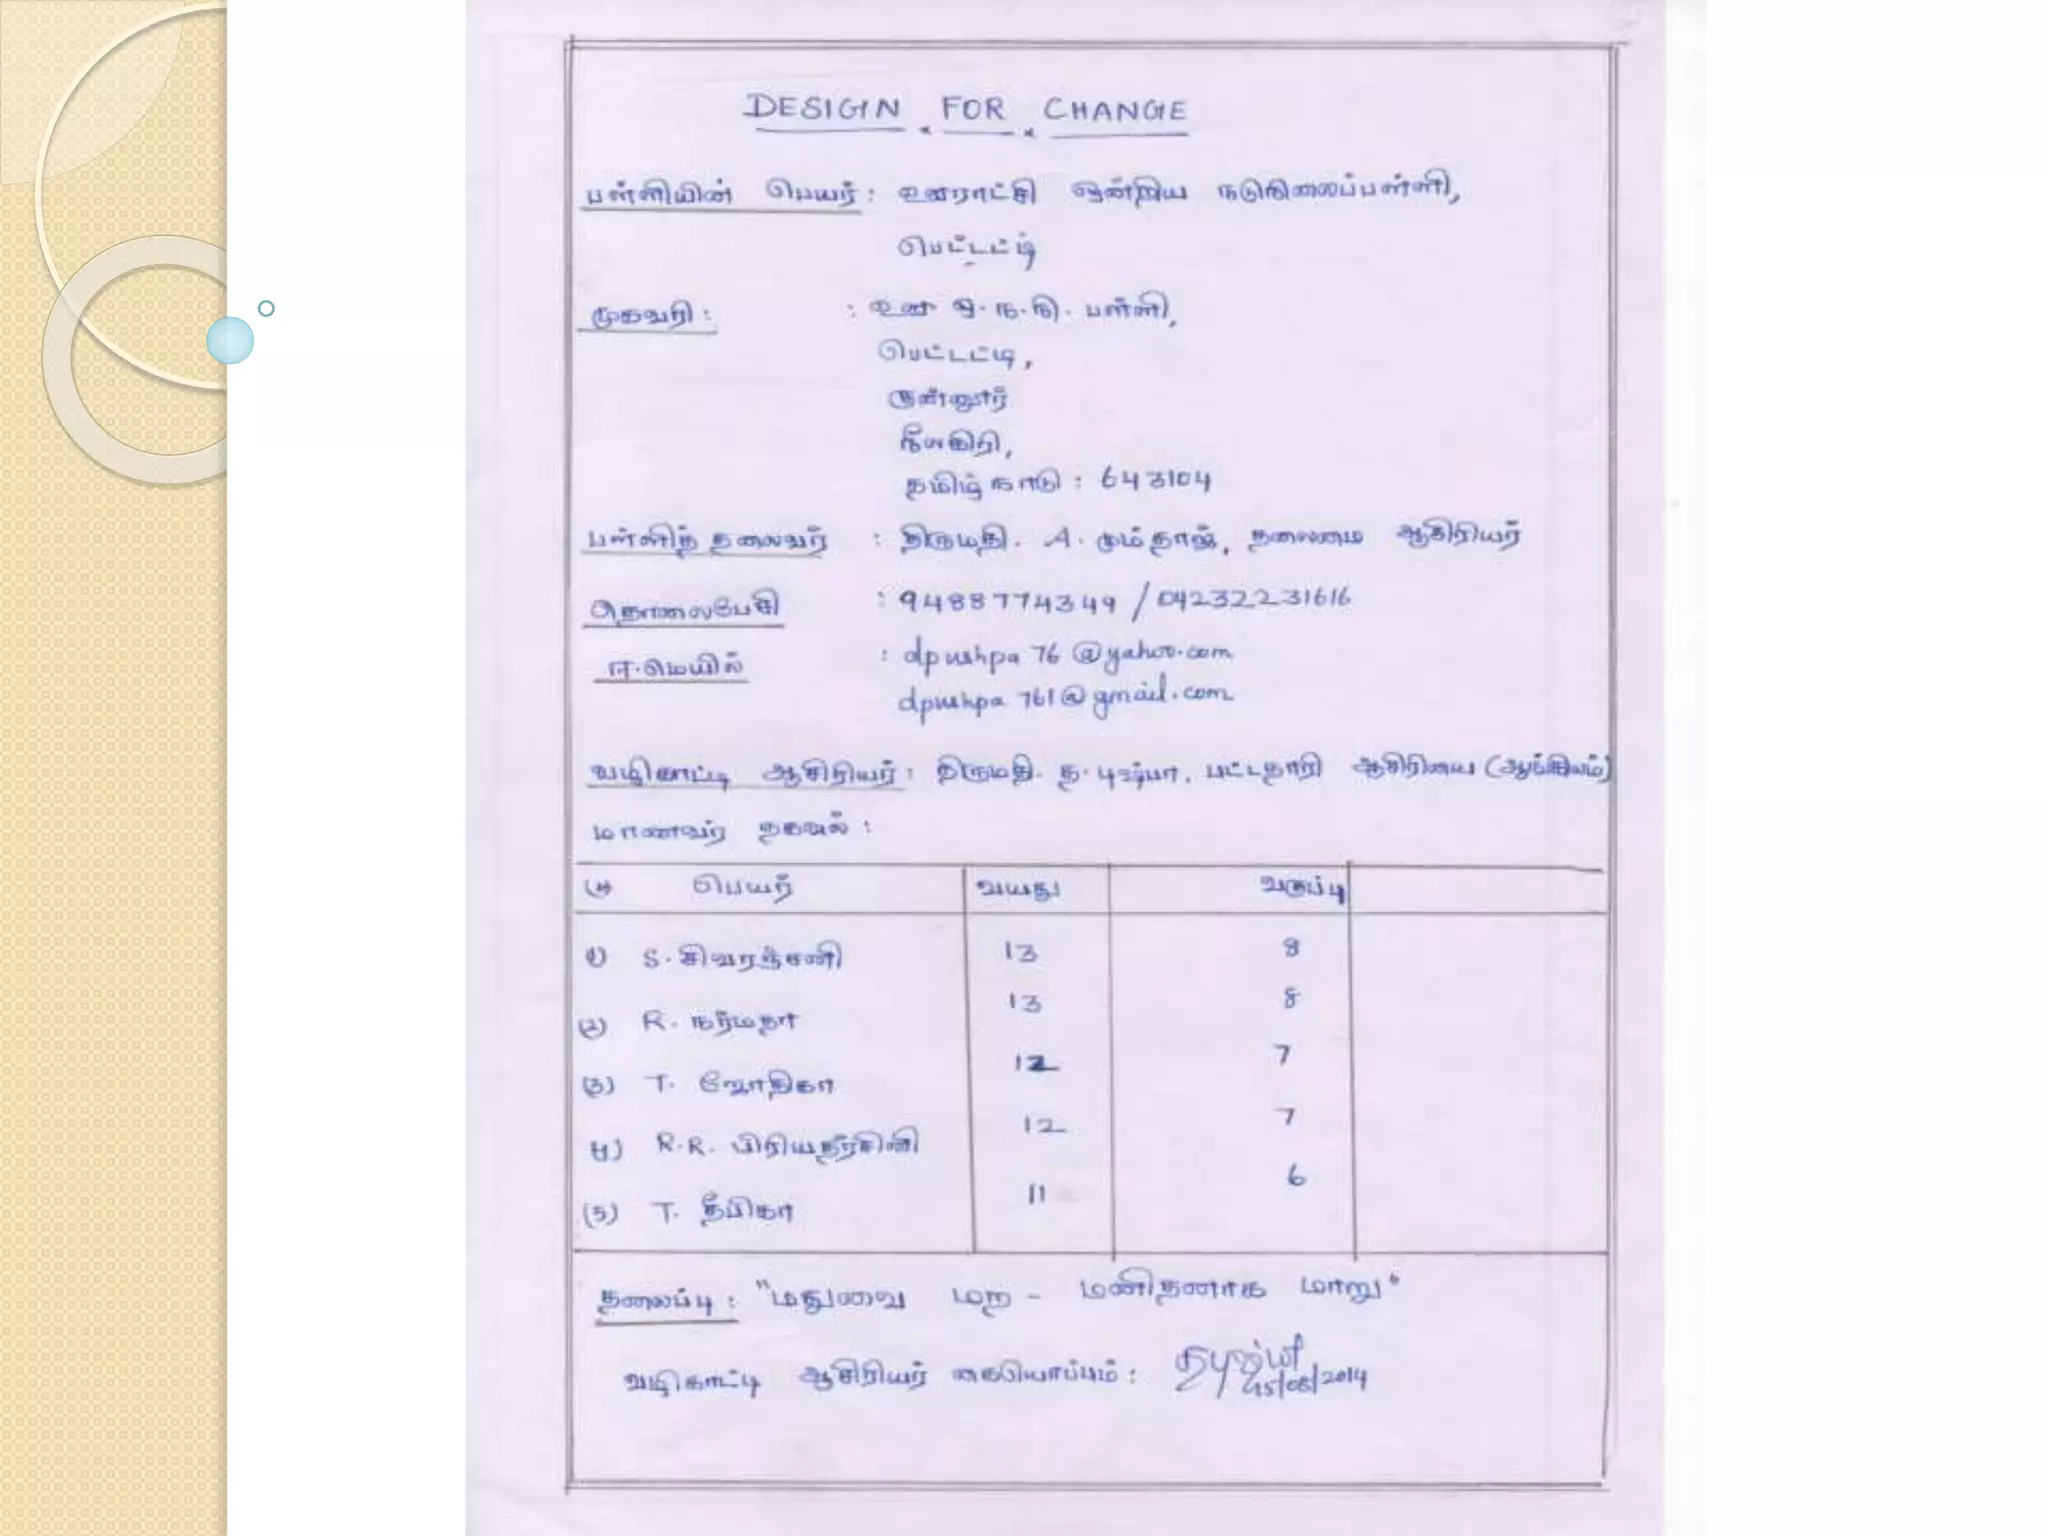 DESIGN FOR CHANGE
பள்ளியின் பெயர் : ஊராட்சி ஒன்றிய நடுநிலைப்பள்ளி,
பெட்டட்டி
முகவரி : : ஊ ஒ. ந. நி. பள்ளி,
பெட்டட்டி,
குன்னூர்
நீலகிரி,
தமிழ் நாடு : 643104
பள்ளித் தலைவர் : திருமதி. A. மும்தாஜ், தலைமை ஆசிரியர்
தொலைபேசி : 9488774349 / 04232231616
ஈ.மெயில் : dpushpa 76 @yahoo.com
dpushpa 761@gmail.com
வழிகாட்டி ஆசிரியர் : திருமதி. த. புஷ்பா, பட்டதாரி ஆசிரியை (ஆங்கிலம்)
மாணவர் தகவல் :
பெயர் வயது வகுப்பு
1) S. சிவரஞ்சனி 13 8
(2) R. நர்மதா 13 8
(3) T. ஜோதிகா 12 7
4) R.R. பிரியதர்சினி 12 7
(5) T. தீபிகா 11 6
தலைப்பு : "மதுவை மற - மனிதனாக மாறு"
வழிகாட்டி ஆசிரியர் கையொப்பம் : 15/08/2014